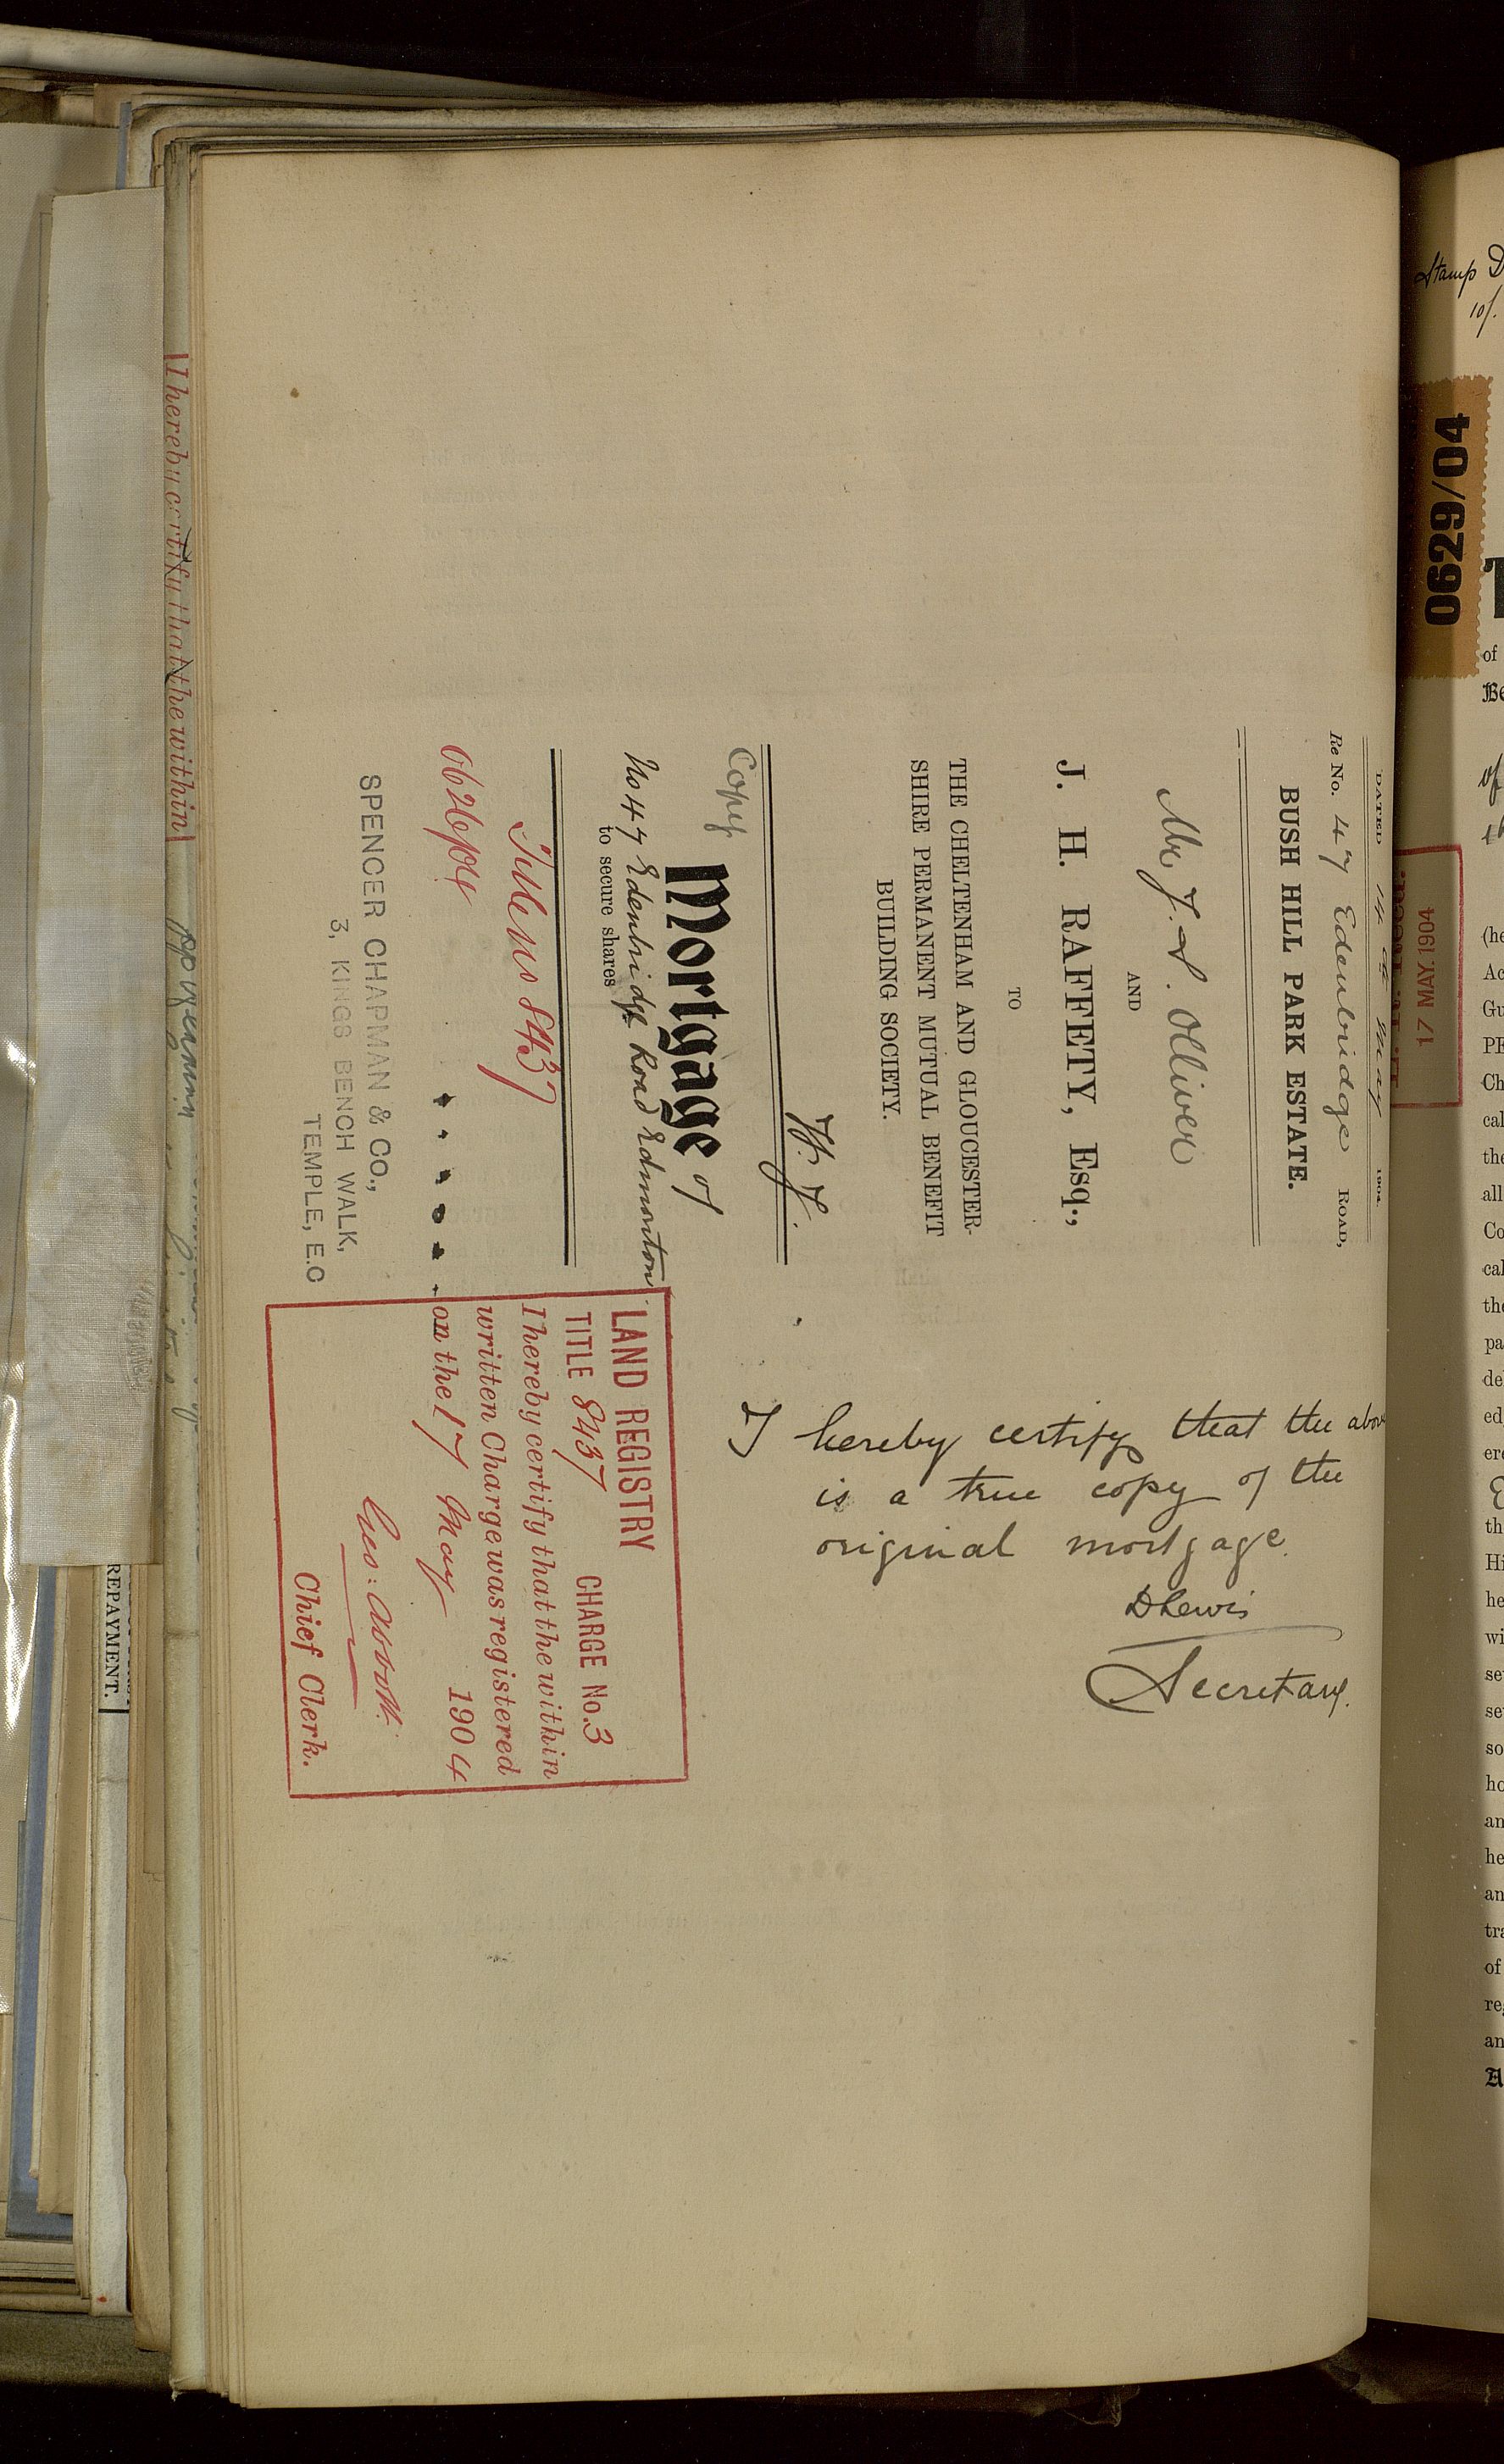 DATED 14th May 1904.
Re No. 47 Edenbridge ROAD,
BUSH HILL PARK ESTATE.
Mr J. S. Olliver
AND
J. H. RAFFETY, Esq.,
TO
THE CHELTENHAM AND GLOUCESTER-
SHIRE PERMANENT MUTUAL BENEFIT
BUILDING SOCIETY.
Copy
Mortgage of
No 47 Edenbridge Road Edmonton
to secure shares
Title no 8437
SPENCER CHAPMAN & CO.,
3, KINGS BENCH WALK,
TEMPLE, E.C
I hereby certify that the above
is a true copy of the
original mortgage.
DLewis
Secretary.
LAND REGISTRY
TITLE 8437 CHARGE No. 3
I hereby certify that the within
written Charge was registered
on the 17 May 1904
Geo: Abbott
Chief Clerk.
I hereby certify that the within
REPAYMENT.
Stamp D
10/.
0629/04
17 MAY. 1904
of
Be
of
(he
Ac
Gu
PE
Ch
cal
the
all
Co
cal
the
pa
del
ed
ere
th
Hi
he
wi
se
se
so
ho
an
he
an
tra
of
re
an
A